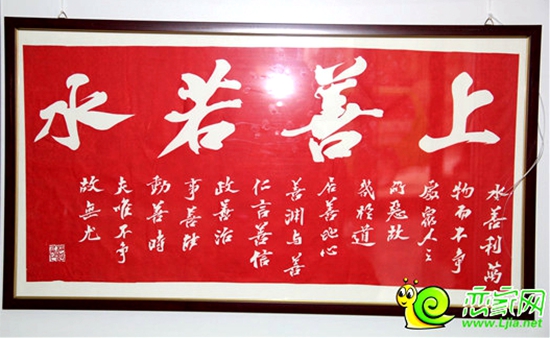 上善若水
水善利萬
物而不争
處衆人之
所惡故
幾於道
居善地心
善淵与善
仁言善信
政善治
事善能
動善時
夫唯不争
故無尤
恋家网
www.Ljia.net